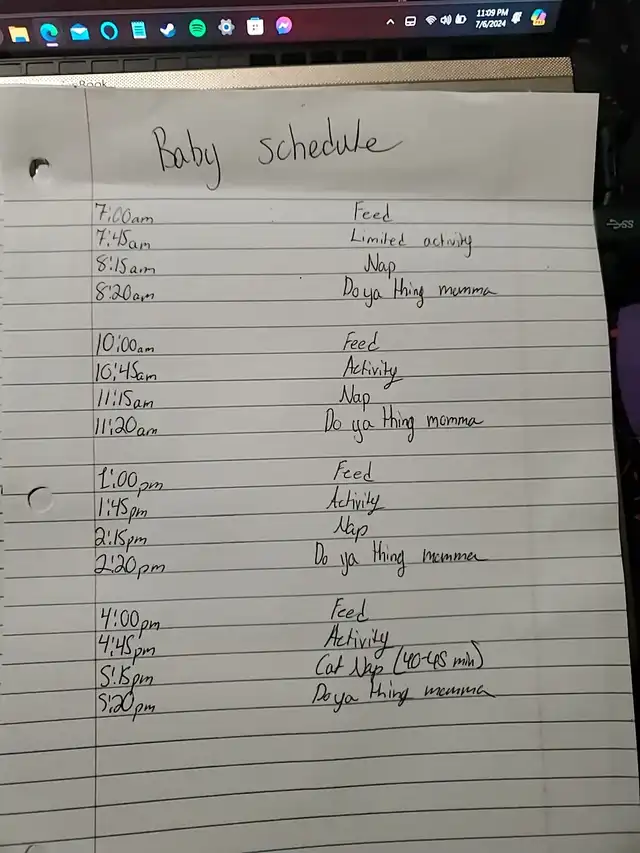 11:09 PM
7/6/2024
Book
Baby schedule
7:00am Feed
7:45am Limited activity
8:15am Nap
8:20am Do ya thing momma
10:00am Feed
10:45am Activity
11:15am Nap
11:20am Do ya thing momma
1:00pm Feed
1:45pm Activity
2:15pm Nap
2:20pm Do ya thing momma
4:00pm Feed
4:45pm Activity
5:15pm Cat Nap (40-45 min)
5:20pm Do ya thing momma